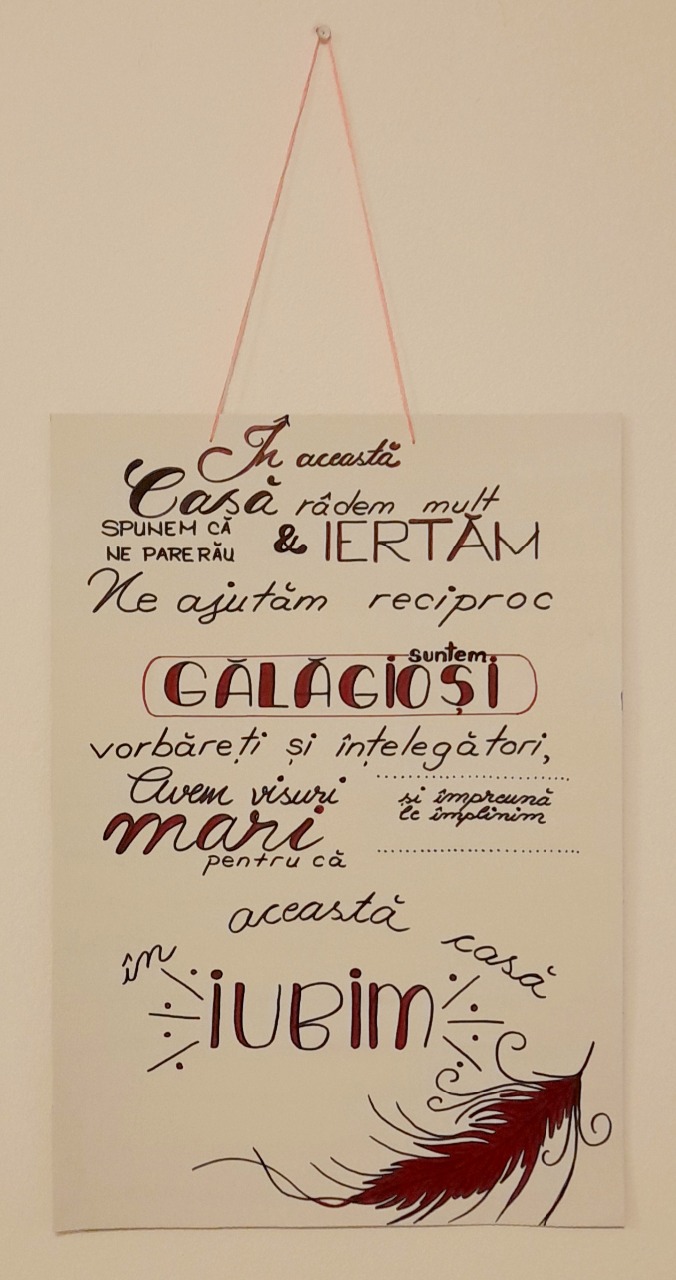 În această
Casă râdem mult
SPUNEM CĂ
NE PARE RĂU
& IERTĂM
Ne ajutăm reciproc
suntem
GĂLĂGIOȘI
vorbăreți și înțelegători,
Avem visuri
mari
pentru că
și împreună
le împlinim
această
în casă
IUBIM